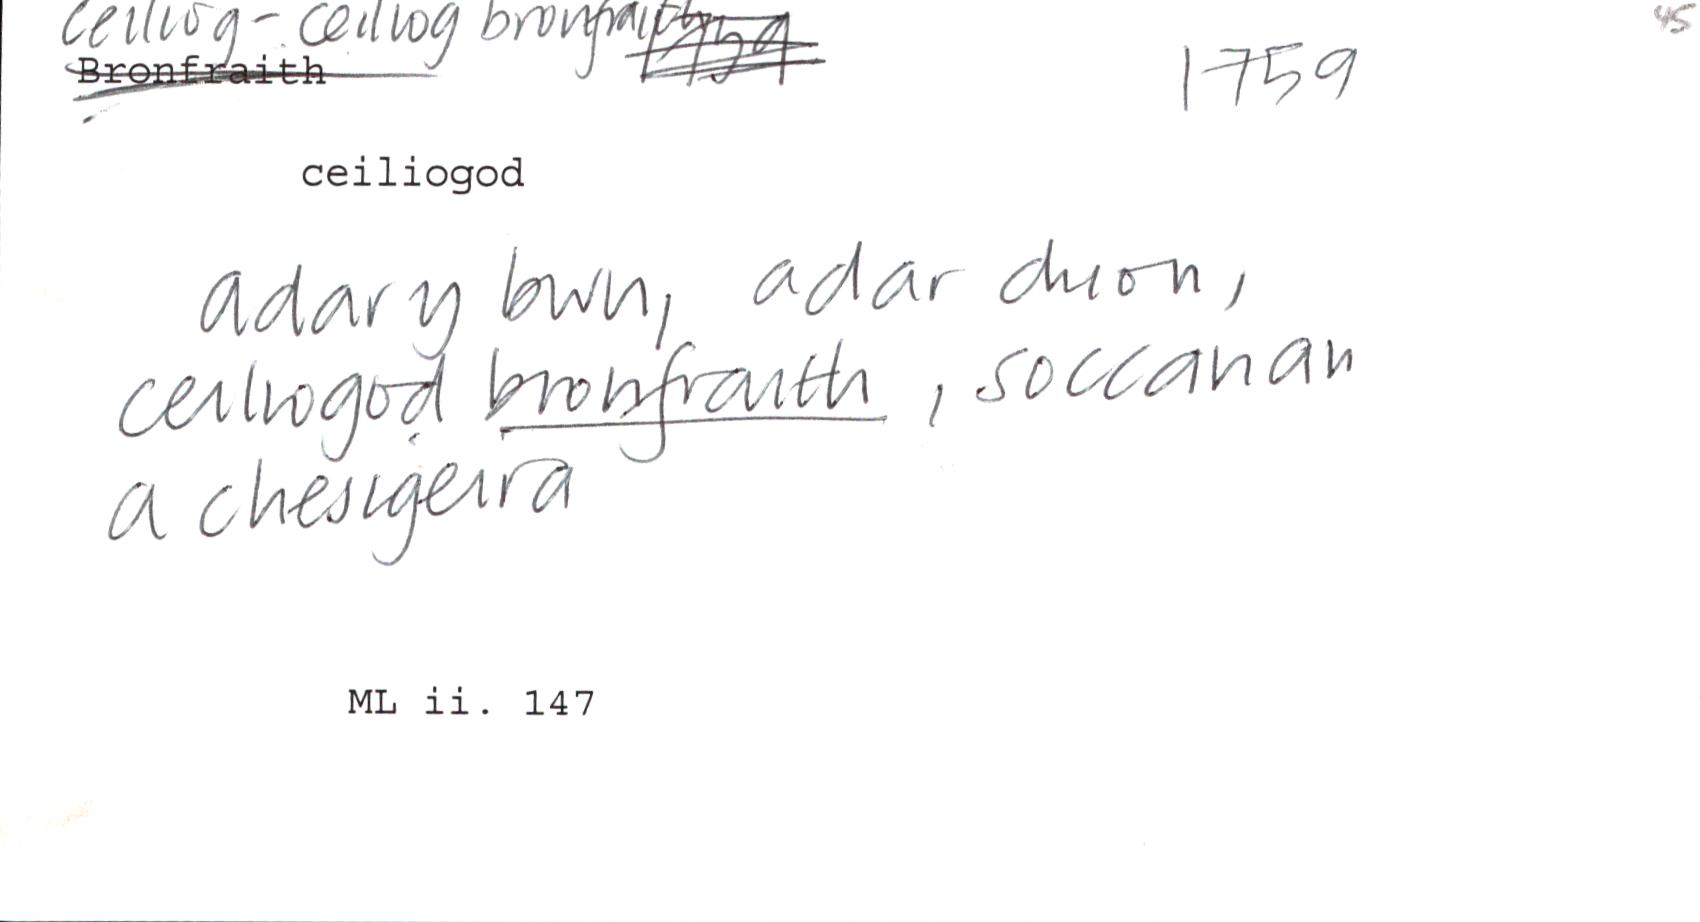 45
ceiliog - ceiliog bronfraith 1759
Bronfraith
1759
ceiliogod
adar y bwn, adar duon,
ceiliogod bronfraith, soccanau
a chesigeira
ML ii. 147